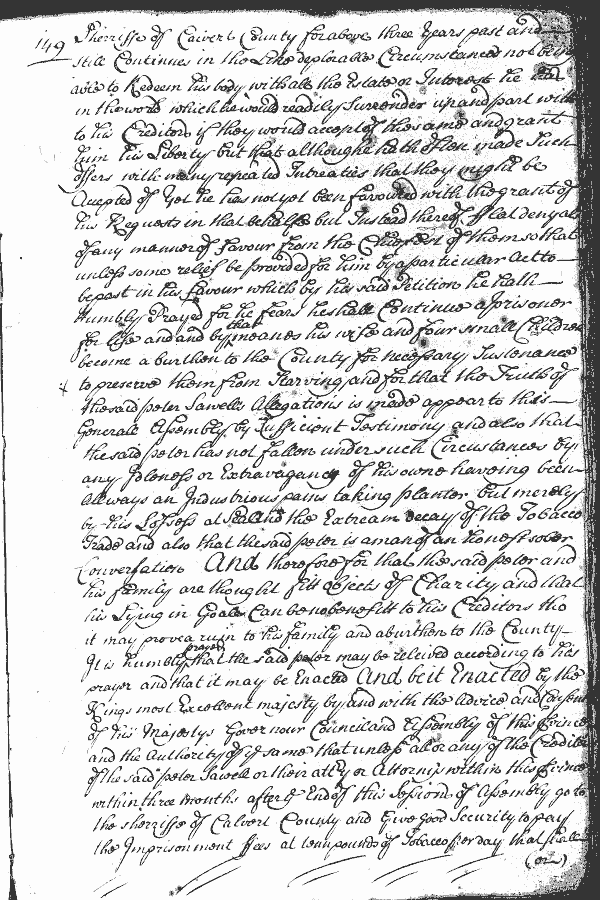 149
Sherriffe of Calvert County for above three Years past and
still Continues in the Like deplorable Circumstances not being
able to Redeem his body with all the Estate or Interest he
in the world which he would readily Surrender up and part with
to his Creditors if they would accept of the same and grant
him his Liberty but that althoughe he hath often made Such
offers with many repeated Intreaties that they might be
Accepted of Yet he has not yet been favoured with the grant of
his Requests in that behalfe but Instead thereof fflat denyals
of any manner of favour from the Chiefest of them so that
unless some relief be provided for him by a particular Act to
be past in his favour which by his said Petition he hath
Humbly Prayed for he fears he shall Continue a prisoner
for life and and by that meanes his wife and four small Children
become a burthen to the County for necessary Sustenance
to preserve them from Starving, and for that the Truth of
the said peter Sawells Alegations is made appear to this
Generall Assembly by Sufficient Testimony and also that
the said peter has not fallen under such Circustances by
any Idleness or Extravagancy of his owne haveing been
Allways an Industrious pains taking planter but merely
by his Losses at Sea and the Extream decay of the Tobacco
Trade and also that the said peter is a man of an honest sober
Conversation And therefore for that the said peter and
his family are thought fitt objects of Charity and that
his Lying in Goale Can be no benefitt to his Creditors tho
it may prove a ruin to his family and a burthen to the County
It is humbly prayed that the said peter may be releived according to his
prayer and that it may be Enacted And be it Enacted by the
Kings most Excellent majesty by and with the Advice and Consent
of his Majestys Governour Councill and Assembly of this Province
and the Authority of ye same that unless all or any of the Creditors
of the said peter Sawell or their atty or Attornys within this Province
within three months after ye End of this Sessions of Assembly go to
the sherriffe of Calvert County and Give good Security to pay
the Imprisonment ffees at tenn pounds of Tobacco per day that shall
(or)